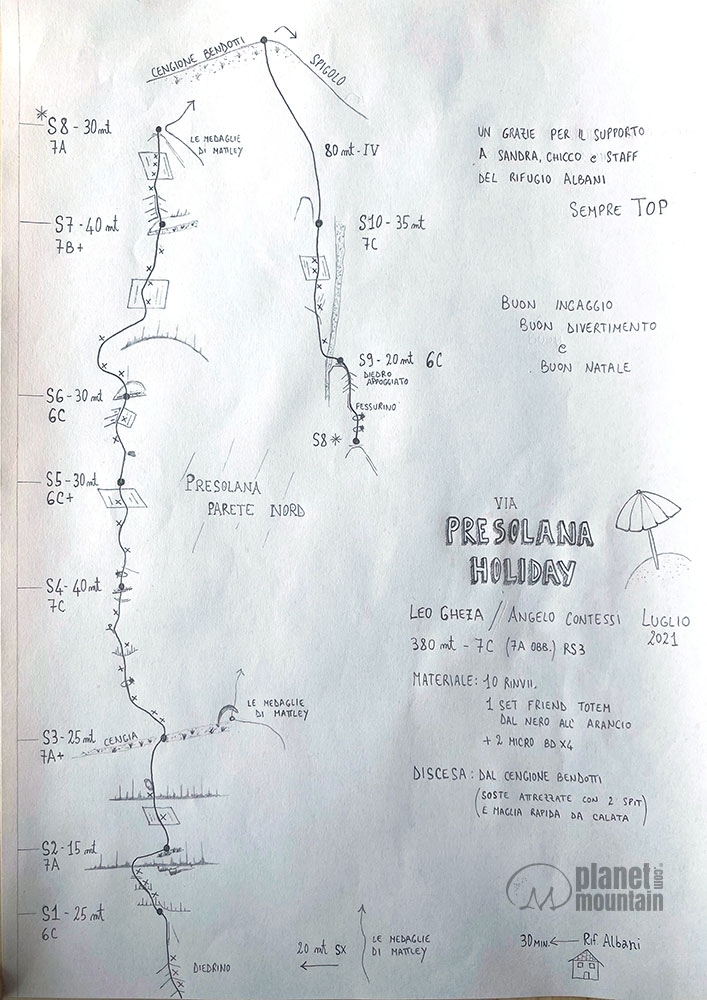 CENGIONE BENDOTTI
SPIGOLO
* S8 - 30mt
7A
LE MEDAGLIE
DI MATTLEY
80 mt - IV
UN GRAZIE PER IL SUPPORTO
A SANDRA, CHICCO e STAFF
DEL RIFUGIO ALBANI
SEMPRE TOP
S7 - 40 mt
7B+
S10 - 35 mt
7C
BUON INGAGGIO
BUON DIVERTIMENTO
e
BUON NATALE
S9 - 20 mt 6C
DIEDRO
APPOGGIATO
FESSURINO
S8 *
S6 - 30 mt
6C
S5 - 30 mt
6C+
PRESOLANA
PARETE NORD
VIA
PRESOLANA
HOLIDAY
S4 - 40 mt
7C
LEO GHEZA / ANGELO CONTESSI LUGLIO
2021
380 mt - 7C (7A OBB.) RS3
MATERIALE: 10 RINVII,
1 SET FRIEND TOTEM
DAL NERO ALL' ARANCIO
+ 2 MICRO BD X4
LE MEDAGLIE
DI MATTLEY
S3 - 25 mt
7A+
CENGIA
DISCESA: DAL CENGIONE BENDOTTI
(SOSTE ATTREZZATE CON 2 SPIT
E MAGLIA RAPIDA DA CALATA)
S2 - 15 mt
7A
planet
mountain
.com
S1 - 25 mt
6C
DIEDRINO
20 mt SX
LE MEDAGLIE
DI MATTLEY
30 MIN. Rif. Albani